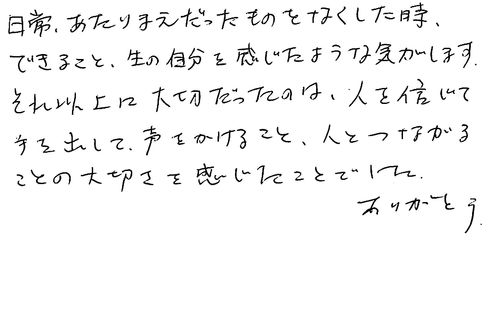 日常、あたりまえだったものをなくした時、
できること、生の自分を感じたような気がします。
それ以上に大切だったのは、人を信じて
手を出して、声をかけること、人とつながる
ことの大切さを感じたことでした。
ありがとう。